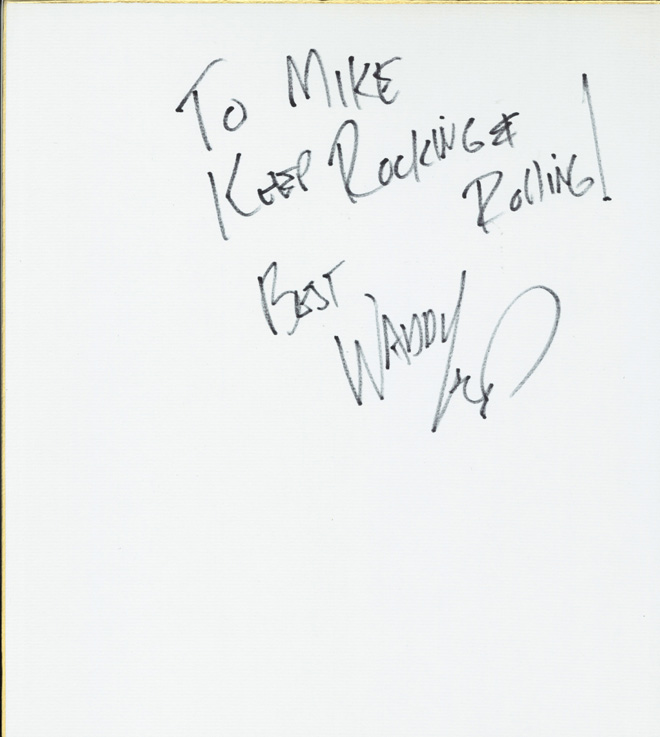 To MIKE
KEEP ROCKING &
ROlliNG!
BEST
WADDY